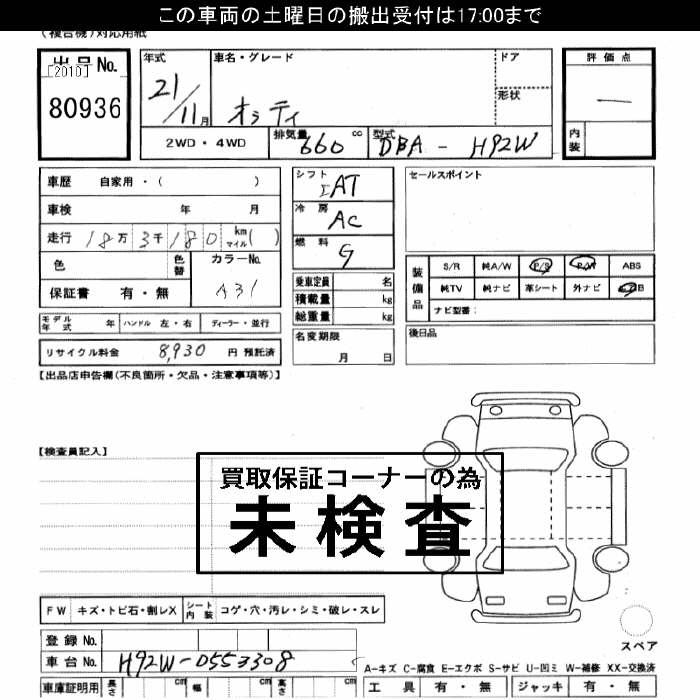 この車両の土曜日の搬出受付は17:00まで
(複合機)対応用紙
出品No.
[2010]
80936
年式
21/11月
車名・グレード
オッティ
ドア
形状
評価点
—
内装
2WD・4WD
排気量 660 cc
型式 DBA - H92W
車歴 自家用・( )
車検 年 月
走行 18万3千180 km マイル( )
色
色替
カラーNo.
A31
保証書 有・無
シフト
IAT
冷房
AC
燃料
G
乗車定員 名
積載量 kg
総重量 kg
セールスポイント
装備品
S/R 純A/W P/S P/W ABS
純TV 純ナビ 革シート 外ナビ B
ナビ型番:
モデル年式 年 ハンドル 左・右 ディーラー・並行
名変期限
月 日
後日品
リサイクル料金 8,930 円 預託済
【出品店申告欄(不良箇所・欠品・注意事項等)】
【検査員記入】
買取保証コーナーの為
未検査
FW キズ・トビ石・割レX シート内装 コゲ・穴・汚レ・シミ・破レ・スレ
スペア
登録No.
車台No. H92W-0553308
A-キズ C-腐食 E-エクボ S-サビ U-凹ミ W-補修 XX-交換済
車庫証明用 長さ cm 幅 cm 高さ cm
工具 有・無 ジャッキ 有・無